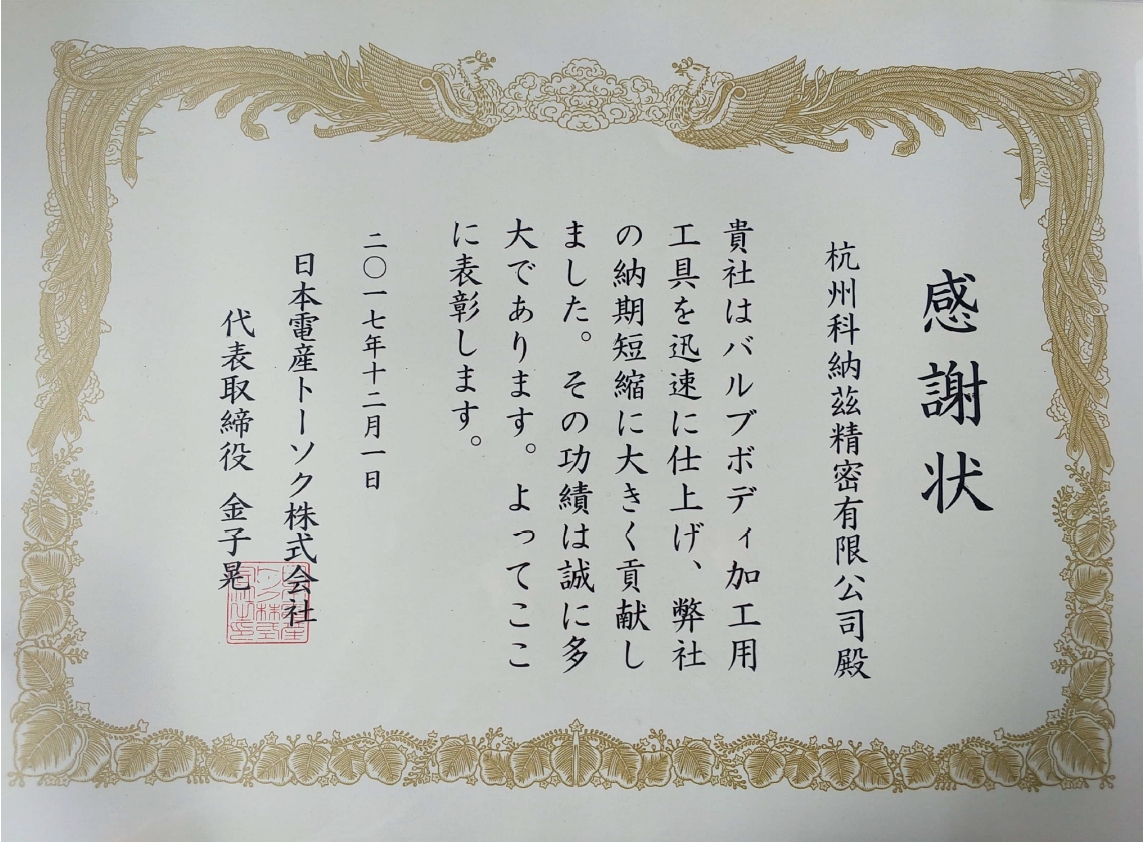 感謝状
杭州科納茲精密有限公司殿
貴社はバルブボディ加工用
工具を迅速に仕上げ、弊社
の納期短縮に大きく貢献し
ました。その功績は誠に多
大であります。よってここ
に表彰します。
二〇一七年十二月一日
日本電産トーソク株式会社
代表取締役 金子晃